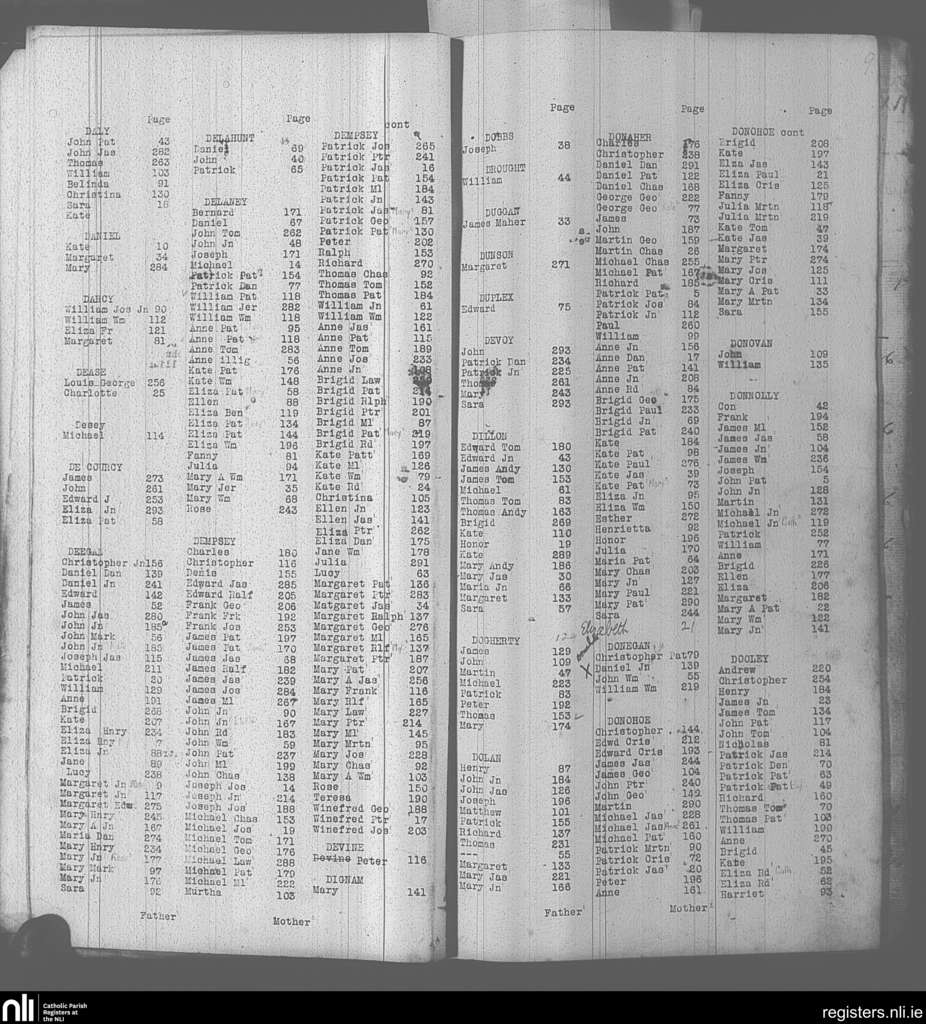 Page
DALY
John Pat 43
John Jas 282
Thomas 263
William 103
Belinda 91
Christina 130
Sara 16
Kate
DANIEL
Kate 10
Margaret 34
Mary 284
DARCY
William Jos Jn 90
William Wm 112
Eliza Fr 121
Margaret 81
DEASE
Louis George 256
Charlotte 25
Desey
Michael 114
DE COURCY
James 273
John 261
Edward J 253
Eliza Jn 293
Eliza Pat 58
DEEGAN
Christopher Jn156
Daniel Dan 139
Daniel Jn 241
Edward 142
James 52
John Jas 280
John Jn 185
John Mark 56
John Jn 185
Joseph Jas 115
Michael 211
Patrick 20
William 129
Anne 191
Brigid 268
Kate 207
Eliza Hnry 234
Eliza Hny 7
Eliza Jn 88
Jane 89
Lucy 238
Margaret Jn 9
Margaret Jn 117
Margaret Edw. 275
Mary Hnry 245
Mary A Jn 167
Maria Dan 274
Mary Hnry 234
Mary Jn 177
Mary Mark 97
Mary Jn 176
Sara 92
Father
Page
DELAHUNT
Daniel 69
John 40
Patrick 65
DELANEY
Bernard 171
Daniel 67
John Tom 262
John Jn 48
Joseph 171
Michael 14
Patrick Pat 154
Patrick Dan 77
William Pat 118
William Jer 282
William Wm 118
Anne Pat 95
Anne Pat 118
Anne Tom 283
Anne illig 56
Kate Pat 176
Kate Wm 148
Eliza Pat 58
Ellen 88
Eliza Ben 119
Eliza Pat 134
Eliza Pat 144
Eliza Wm 196
Fanny 81
Julia 94
Mary A Wm 171
Mary Jer 35
Mary Wm 68
Rose 243
DEMPSEY
Charles 180
Christopher 116
Denis 155
Edward Jas 285
Edward Ralf 205
Frank Geo 206
Frank Frk 192
Frank Jos 253
James Pat 197
James Pat 170
James Jas 68
James Ralf 182
James Jos 284
James Ml 267
John Jn 90
John Jn 167
John Rd 183
John Wm 59
John Pat 237
John Ml 199
John Chas 138
Joseph Jos 14
Joseph Jn 214
Joseph Jos 188
Michael Chas 153
Michael Jos 19
Michael Tom 171
Michael Geo 176
Michael Law 288
Michael Pat 179
Michael Ml 222
Murtha 103
Mother
cont
DEMPSEY
Patrick Jos 265
Patrick Ptr 241
Patrick Jas 16
Patrick Pat 154
Patrick Ml 184
Patrick Jn 143
Patrick Jas 81
Patrick Geo 157
Patrick Pat 130
Peter 202
Ralph 153
Richard 270
Thomas Chas 92
Thomas Tom 152
Thomas Pat 184
William Jn 61
William Wm 122
Anne Jas 161
Anne Pat 115
Anne Tom 189
Anne Jos 233
Anne Jn
Brigid Law
Brigid Pat
Brigid Rlph 190
Brigid Ptr 201
Brigid Ml 87
Brigid Pat 219
Brigid Rd 197
Kate Patt 169
Kate Ml 126
Kate Wm 79
Kate Rd 24
Christina 105
Ellen Jn 123
Ellen Jas 141
Eliza Ptr 262
Eliza Dan 175
Jane Wm 178
Julia 291
Lucy 63
Margaret Pat 136
Margaret Ptr 283
Matgaret Jas 34
Margaret Ralph 137
Margaret Geo 276
Margaret Ml 165
Margaret Rlf 137
Margaret Ptr 187
Mary Pat 207
Mary A Jas 256
Mary Frank 116
Mary Rlf 165
Mary Law 227
Mary Ptr 214
Mary Ml 145
Mary Mrtn 95
Mary Jos 228
Mary Chas 92
Mary A Wm 103
Rose 150
Teresa 190
Winefred Geo 188
Winefred Ptr 17
Winefred Jos 203
DEVINE
Devine Peter 116
DIGNAM
Mary 141
Page
DOBBS
Joseph 38
DROUGHT
William 44
DUGGAN
James Maher 33
DUNSON
Margaret 271
DUPLEX
Edward 75
DEVOY
John 293
Patrick Dan 234
Patrick Jn 225
Thomas 261
Mary 243
Sara 293
DILLON
Edward Tom 180
Edward Jn 43
James Andy 130
James Tom 153
Michael 61
Thomas Tom 83
Thomas Andy 163
Brigid 269
Kate 110
Honor 19
Kate 289
Mary Andy 186
Mary Jas 30
Maria Jn 66
Margaret 133
Sara 57
DOGHERTY
James 129
John 109
Martin 47
Michael 223
Patrick 83
Peter 192
Thomas 153
Mary 174
DOLAN
Henry 87
John Jn 184
John Jas 126
Joseph 196
Matthew 101
Patrick 155
Richard 137
Thomas 231
--- 55
Margaret 133
Mary Jas 221
Mary Jn 166
Father
Page
DONAHER
Charles 176
Christopher 238
Daniel Dan 291
Daniel Pat 122
Daniel Chas 168
George Geo 222
George Geo 77
James 73
John 187
Martin Geo 159
Martin Chas 26
Michael Chas 255
Michael Pat 167
Richard 185
Patrick Pat 5
Patrick Jos 84
Patrick Jn 112
Paul 260
William 99
Anne Jn 156
Anne Dan 17
Anne Pat 141
Anne Jn 208
Anne Rd 84
Brigid Geo 175
Brigid Paul 233
Brigid Jn 69
Brigid Pat 240
Kate 184
Kate Pat 98
Kate Paul 276
Kate Jas 39
Kate Pat 73
Eliza Jn 95
Eliza Wm 150
Esther 272
Henrietta 92
Honor 196
Julia 170
Maria Pat 64
Mary Chas 203
Mary Jn 127
Mary Paul 221
Mary Pat 290
Sara 244
Elizabeth 21
DONEGAN
Christopher Pat79
Daniel Jn 139
John Wm 55
William Wm 219
DONOHOE
Christopher 144
Edwd Cris 212
Edward Cris 193
James Jas 244
James Geo 104
John Ptr 240
John Geo 142
Martin 290
Michael Jas 228
Michael Jas 261
Michael Pat 160
Patrick Mrtn 90
Patrick Cris 72
Patrick Jas 20
Peter 196
Anne 161
Mother
Page
DONOHOE cont
Brigid 208
Kate 197
Elza Jas 143
Eliza Paul 21
Eliza Cris 125
Fanny 179
Julia Mrtn 118
Julia Mrtn 219
Kate Tom 47
Kate Jas 39
Margaret 174
Mary Ptr 274
Mary Jos 125
Mary Cris 111
Mary A Pat 33
Mary Mrtn 134
Sara 155
DONOVAN
John 109
William 135
DONNOLLY
Con 42
Frank 194
James Ml 152
James Jas 58
James Jn 104
James Wm 236
Joseph 154
John Pat 5
John Jn 128
Martin 131
Michael Jn 272
Michael Jn 119
Patrick 252
William 77
Anne 171
Brigid 226
Ellen 177
Eliza 206
Margaret 182
Mary A Pat 22
Mary Wm 122
Mary Jn 141
DOOLEY
Andrew 220
Christopher 254
Henry 184
James Jn 23
James Tom 134
John Pat 117
John Tom 104
Nicholas 81
Patrick Jas 214
Patrick Den 70
Patrick Pat 63
Patrick Pat 49
Richard 160
Thomas Tom 70
Thomas Pat 103
William 199
Anne 270
Brigid 45
Kate 195
Eliza Rd 52
Eliza Rd 62
Harriet 93
nli
Catholic Parish
Registers at
the NLI
registers.nli.ie